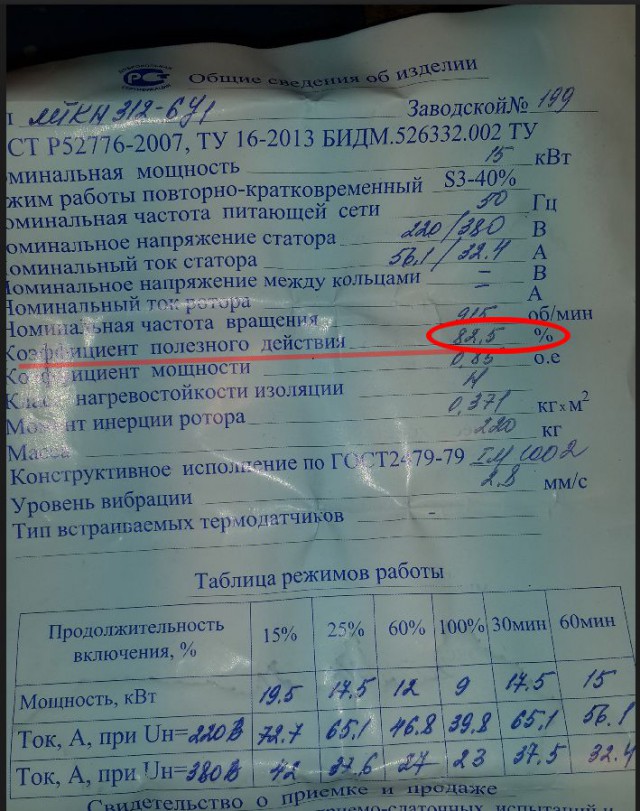 Общие сведения об изделии
Заводской№ 199
СТ Р52776-2007, ТУ 16-2013 БИДМ.526332.002 ТУ
оминальная мощность 15 кВт
ежим работы повторно-кратковременный S3-40%
оминальная частота питающей сети 50 Гц
оминальное напряжение статора 220/380 В
оминальный ток статора 56.1/32.4 А
Номинальное напряжение между кольцами – В
Номинальный ток ротора – А
Номинальная частота вращения 915 об/мин
Коэффициент полезного действия 82,5 %
Коэффициент мощности 0,85 о.е
Класс нагревостойкости изоляции Н
Момент инерции ротора 0,371 кг х м²
Масса 220 кг
Конструктивное исполнение по ГОСТ2479-79 IM 1002
Уровень вибрации 2.8 мм/с
Тип встраиваемых термодатчиков –
Таблица режимов работы
Продолжительность включения, % 15% 25% 60% 100% 30мин 60мин
Мощность, кВт 19.5 17.5 12 9 17.5 15
Ток, А, при Uн=220В 72.7 65.1 46.8 39.8 65.1 56.1
Ток, А, при Uн=380В 42 37.6 27 23 37.5 32.4
Свидетельство о приемке и продаже